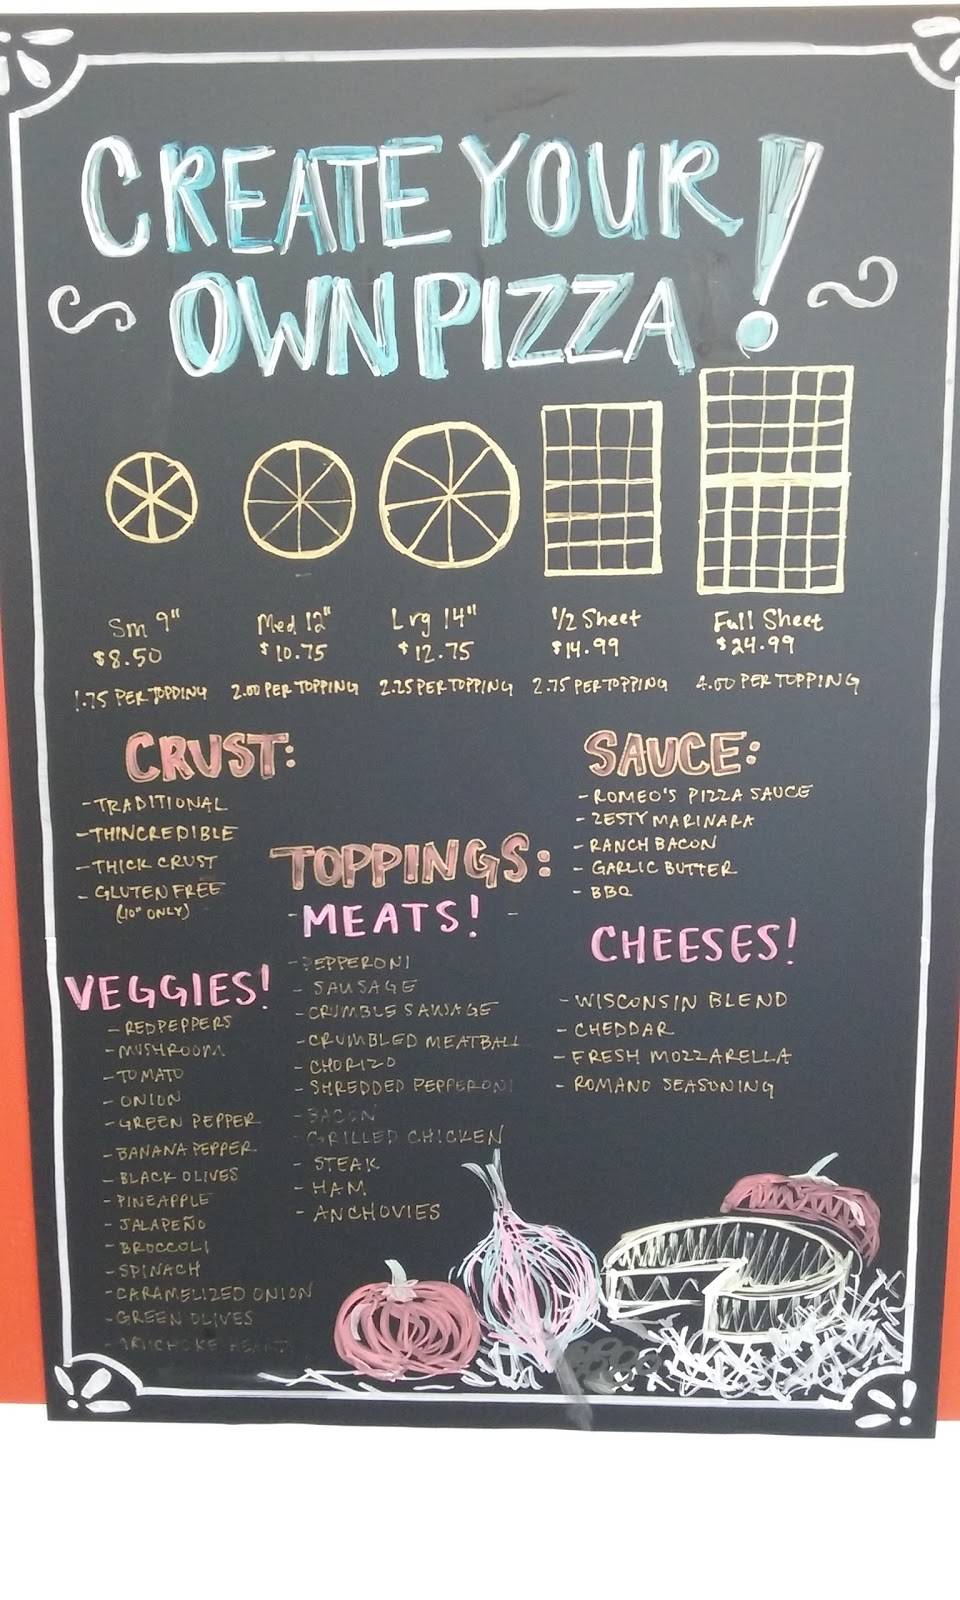 CREATE YOUR
OWN PIZZA!
Sm 9"
$8.50
1.75 PER TOPPING
Med 12"
$10.75
2.00 PER TOPPING
Lrg 14"
$12.75
2.25 PER TOPPING
1/2 Sheet
$14.99
2.75 PER TOPPING
Full Sheet
$24.99
4.00 PER TOPPING
CRUST:
- TRADITIONAL
- THINCREDIBLE
- THICK CRUST
- GLUTEN FREE
(10" ONLY)
SAUCE:
- ROMEO'S PIZZA SAUCE
- ZESTY MARINARA
- RANCH BACON
- GARLIC BUTTER
- BBQ
TOPPINGS:
- MEATS! -
- PEPPERONI
- SAUSAGE
- CRUMBLE SAUSAGE
- CRUMBLED MEATBALL
- CHORIZO
- SHREDDED PEPPERONI
- BACON
- GRILLED CHICKEN
- STEAK
- HAM
- ANCHOVIES
VEGGIES!
- RED PEPPERS
- MUSHROOM
- TOMATO
- ONION
- GREEN PEPPER
- BANANA PEPPER
- BLACK OLIVES
- PINEAPPLE
- JALAPEÑO
- BROCCOLI
- SPINACH
- CARAMELIZED ONION
- GREEN OLIVES
- ARTICHOKE HEART
CHEESES!
- WISCONSIN BLEND
- CHEDDAR
- FRESH MOZZARELLA
- ROMANO SEASONING